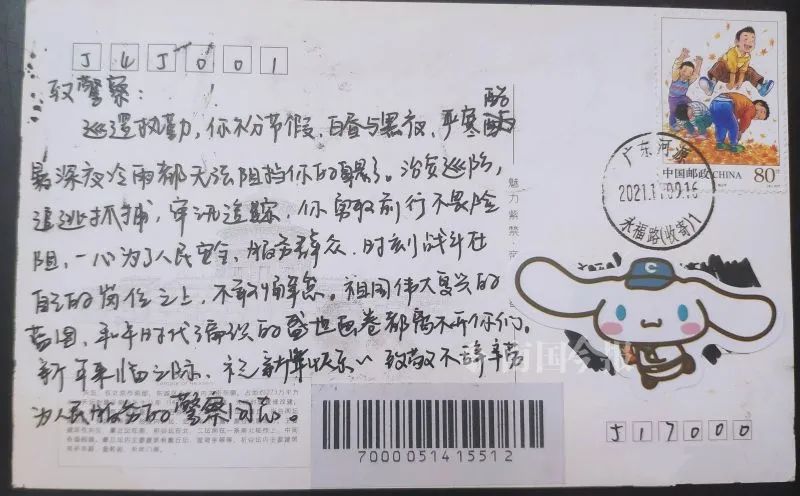 545001
致警察：
巡逻执勤，你不分节假、白昼与黑夜，严寒酷
暑深夜冷雨都无法阻挡你的身影。治安巡防，
追逃抓捕，审讯追踪，你勇敢前行不畏险
阻，一心为了人民安全，服务群众，时刻战斗在
自己的岗位之上，不敢懈怠。祖国伟大复兴的
蓝图，和平时代编织的盛世画卷都离不开你们。
新年来临之际，祝新年快乐，致敬不辞辛劳
为人民服务的警察同志。
魅力紫禁
中国邮政 CHINA
80分
广东河源
2021.1 09.16
永福路(收寄)1
C
南国今报
7000051415512
517000